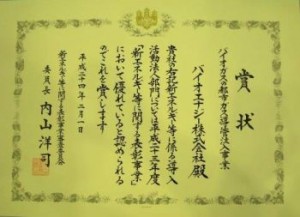 賞状
バイオガスの都市ガス導管注入事業
バイオエナジー株式会社殿
貴社の右記新エネルギー等に係る導入
活動は本部門において平成二十三年度
「新エネルギー等に関する表彰事業」
において優れていると認められる
のでこれを賞します
平成二十四年二月一日
新エネルギー等に関する表彰事業審査委員会
委員長 内山洋司